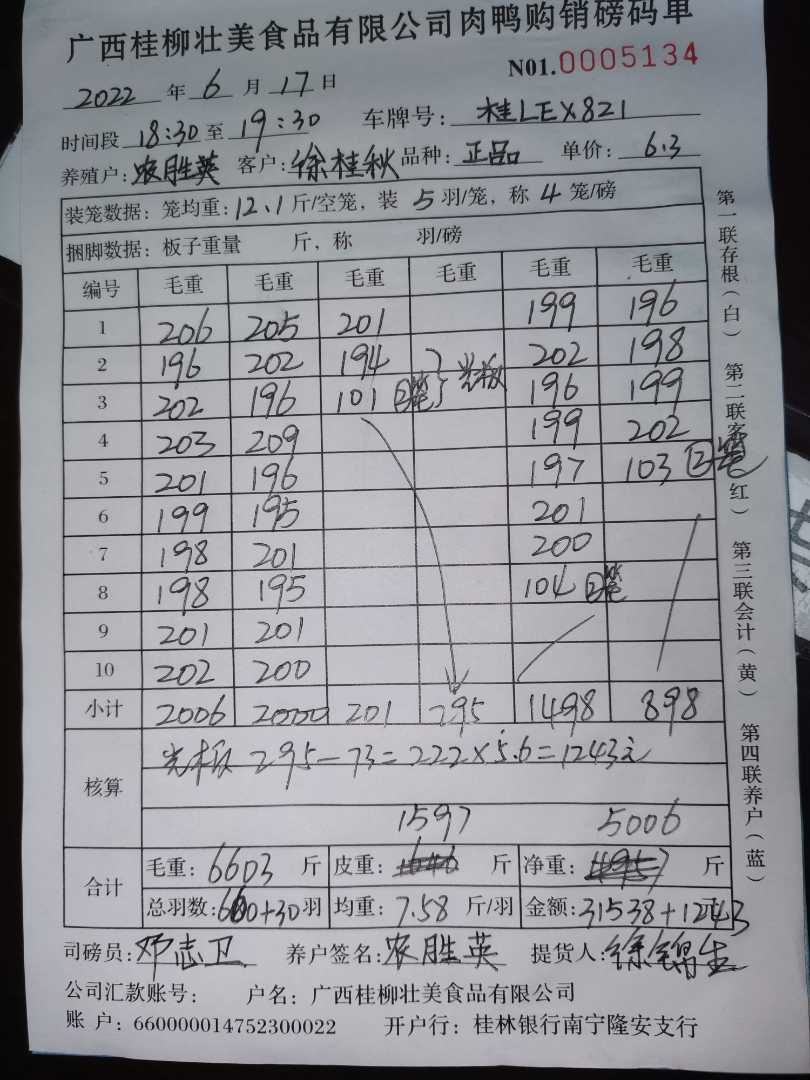 广西桂柳壮美食品有限公司肉鸭购销磅码单
2022 年 6 月 17 日 N01.0005134
时间段 18:30 至 19:30 车牌号: 桂LEX821
养殖户: 农胜英 客户: 徐桂秋 品种: 正品 单价: 6.3
装笼数据: 笼均重: 12.1 斤/空笼, 装 5 羽/笼, 称 4 笼/磅
捆脚数据: 板子重量 斤, 称 羽/磅
编号 毛重 毛重 毛重 毛重 毛重 毛重
1 206 205 201 199 196
2 196 202 194 202 198
3 202 196 101 2笼 光板 196 199
4 203 209 199 202
5 201 196 197 103 2笼
6 199 195 201
7 198 201 200
8 198 195 104 2笼
9 201 201
10 202 200
小计 2006 2000 201 295 1498 898
核算 光板 295-73=222×5.6=1243元
1597 5006
合计 毛重: 6603 斤 皮重: 斤 净重: 斤
总羽数: 660+30 羽 均重: 7.58 斤/羽 金额: 31538+1243
司磅员: 邓志卫 养户签名: 农胜英 提货人: 徐锦生
公司汇款账号: 户名: 广西桂柳壮美食品有限公司
账 户: 660000014752300022 开户行: 桂林银行南宁隆安支行
第一联存根(白) 第二联客 红) 第三联会计(黄) 第四联养户(蓝)